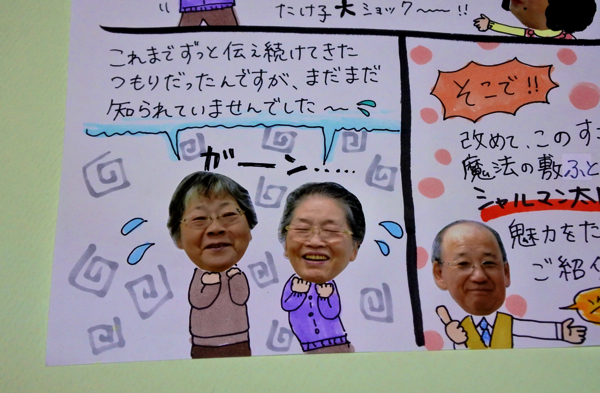 たけ子大ショック〜〜!!
これまでずっと伝え続けてきた
つもりだったんですが、まだまだ
知られていませんでした〜
ガーン……
そこで!!
改めて、このす
魔法の敷ふと
シャルマン太
魅力をた
ご紹介